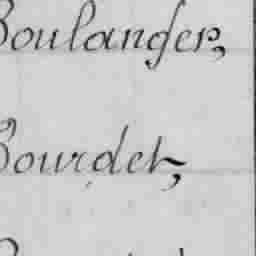 Boulanger,
Bourdet,